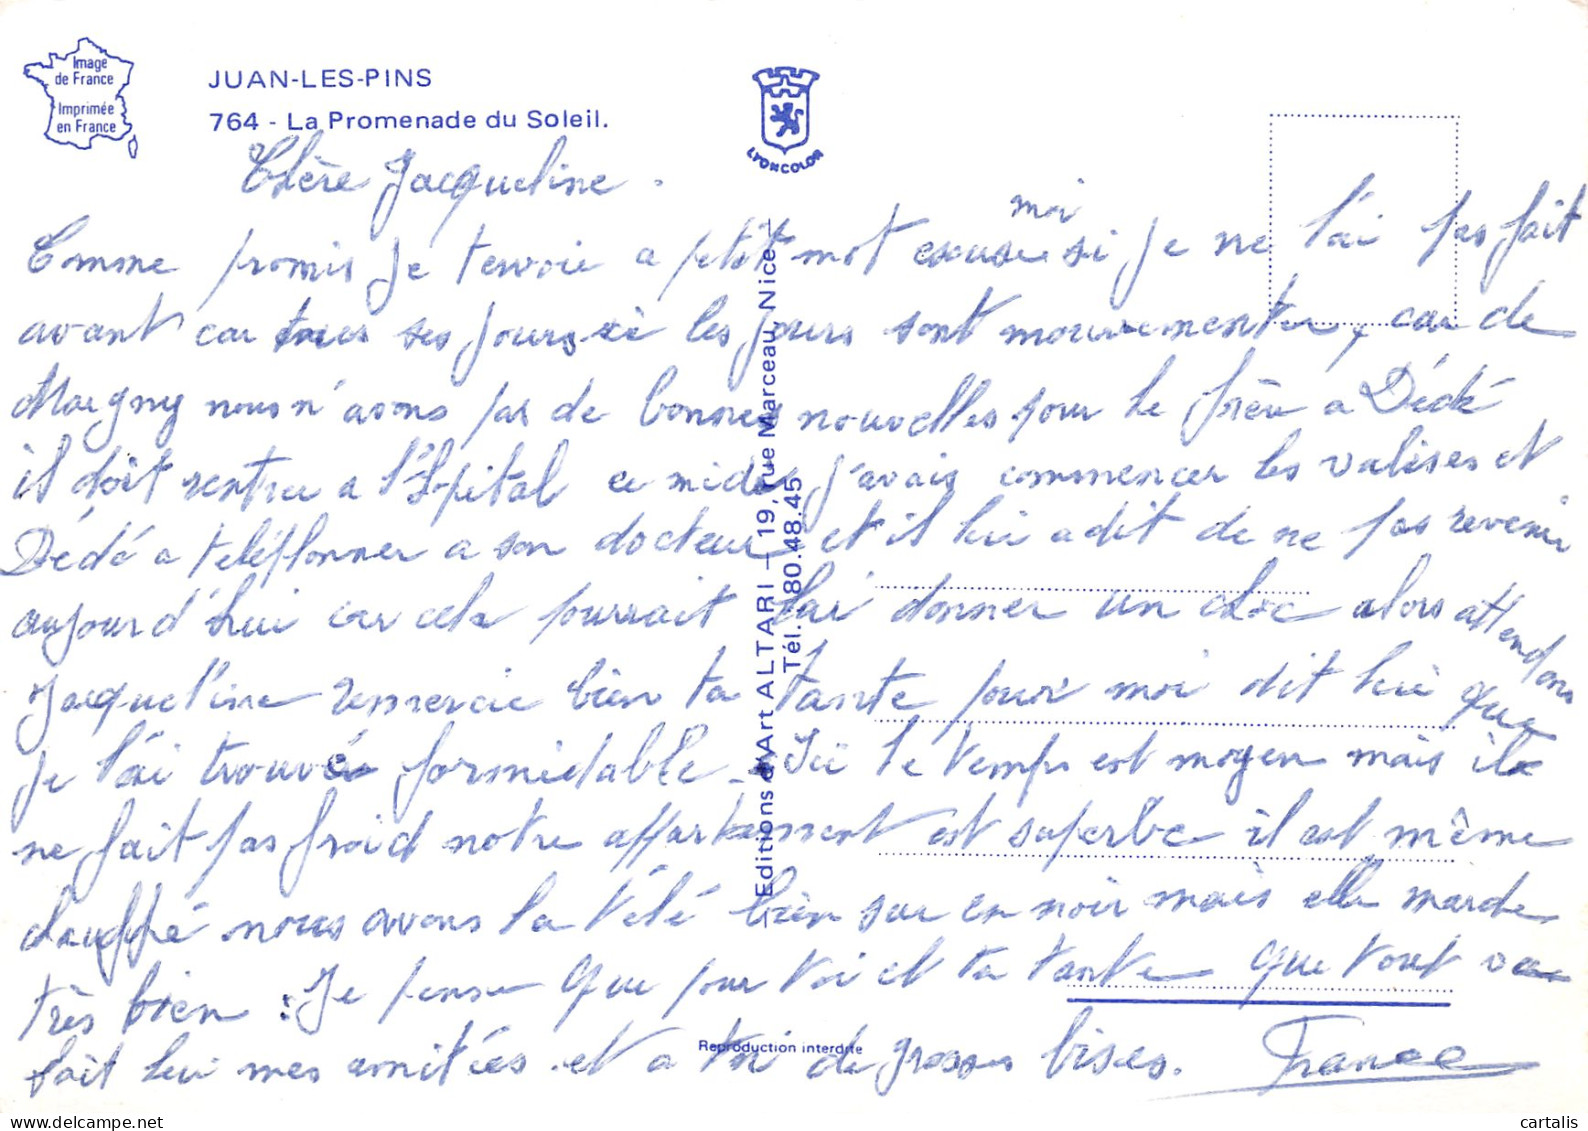 Image
de France
Imprimée
en France
JUAN-LES-PINS
764 - La Promenade du Soleil.
LYONCOLOR
Chère Jacqueline.
moi
Comme promis je t'envoie a petit mot excuse si je ne l'ai pas fait
avant car tous ses jours ci les jours sont mouvementer, car de
Margny nous n'avons pas de bonnes nouvelles pour le frère a Dédé
il doit rentrer a l'hôpital ce midi j'avais commencer les valises et
Dédé a téléphonner a son docteur et il lui a dit de ne pas revenir
aujourd'hui car cela pourrait lui donner un choc alors attendons
Jacqueline remercie bien ta tante pour moi dit lui que
je l'ai trouvé formidable. Ici le temps est moyen mais il
ne fait pas froid notre appartement est superbe il est même
chauffé nous avons la télé bien sur en noir mais elle marche
très bien : Je pense que pour toi et ta tante que tout va
fait lui mes amitiés et a toi de grosses bises. France
Editions d'Art ALTARI - 19, rue Marceau, Nice
Tél. 80.48.45
Reproduction interdite
cartalis
www.delcampe.net